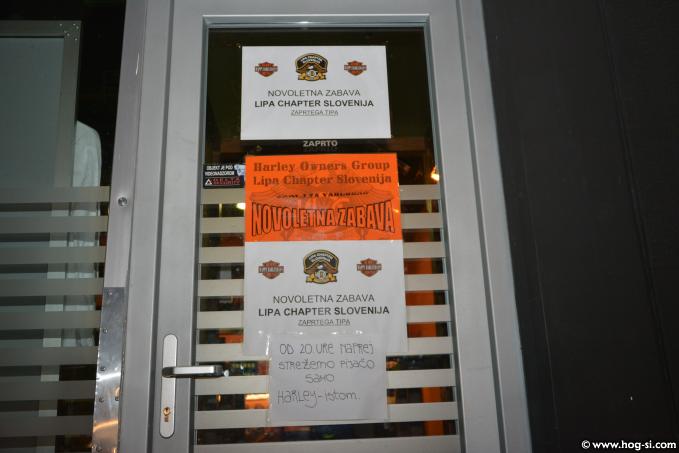 NOVOLETNA ZABAVA
LIPA CHAPTER SLOVENIJA
ZAPRTEGA TIPA
ZAPRTO
OBJEKT JE POD
VIDEONADZOROM
DELTA
Harley Owners Group
Lipa Chapter Slovenija
NOVOLETNA ZABAVA
NOVOLETNA ZABAVA
LIPA CHAPTER SLOVENIJA
ZAPRTEGA TIPA
OD 20. URE NAPREJ
STREŽEMO PIJAČO
SAMO
HARLEY-istom.
© www.hog-si.com